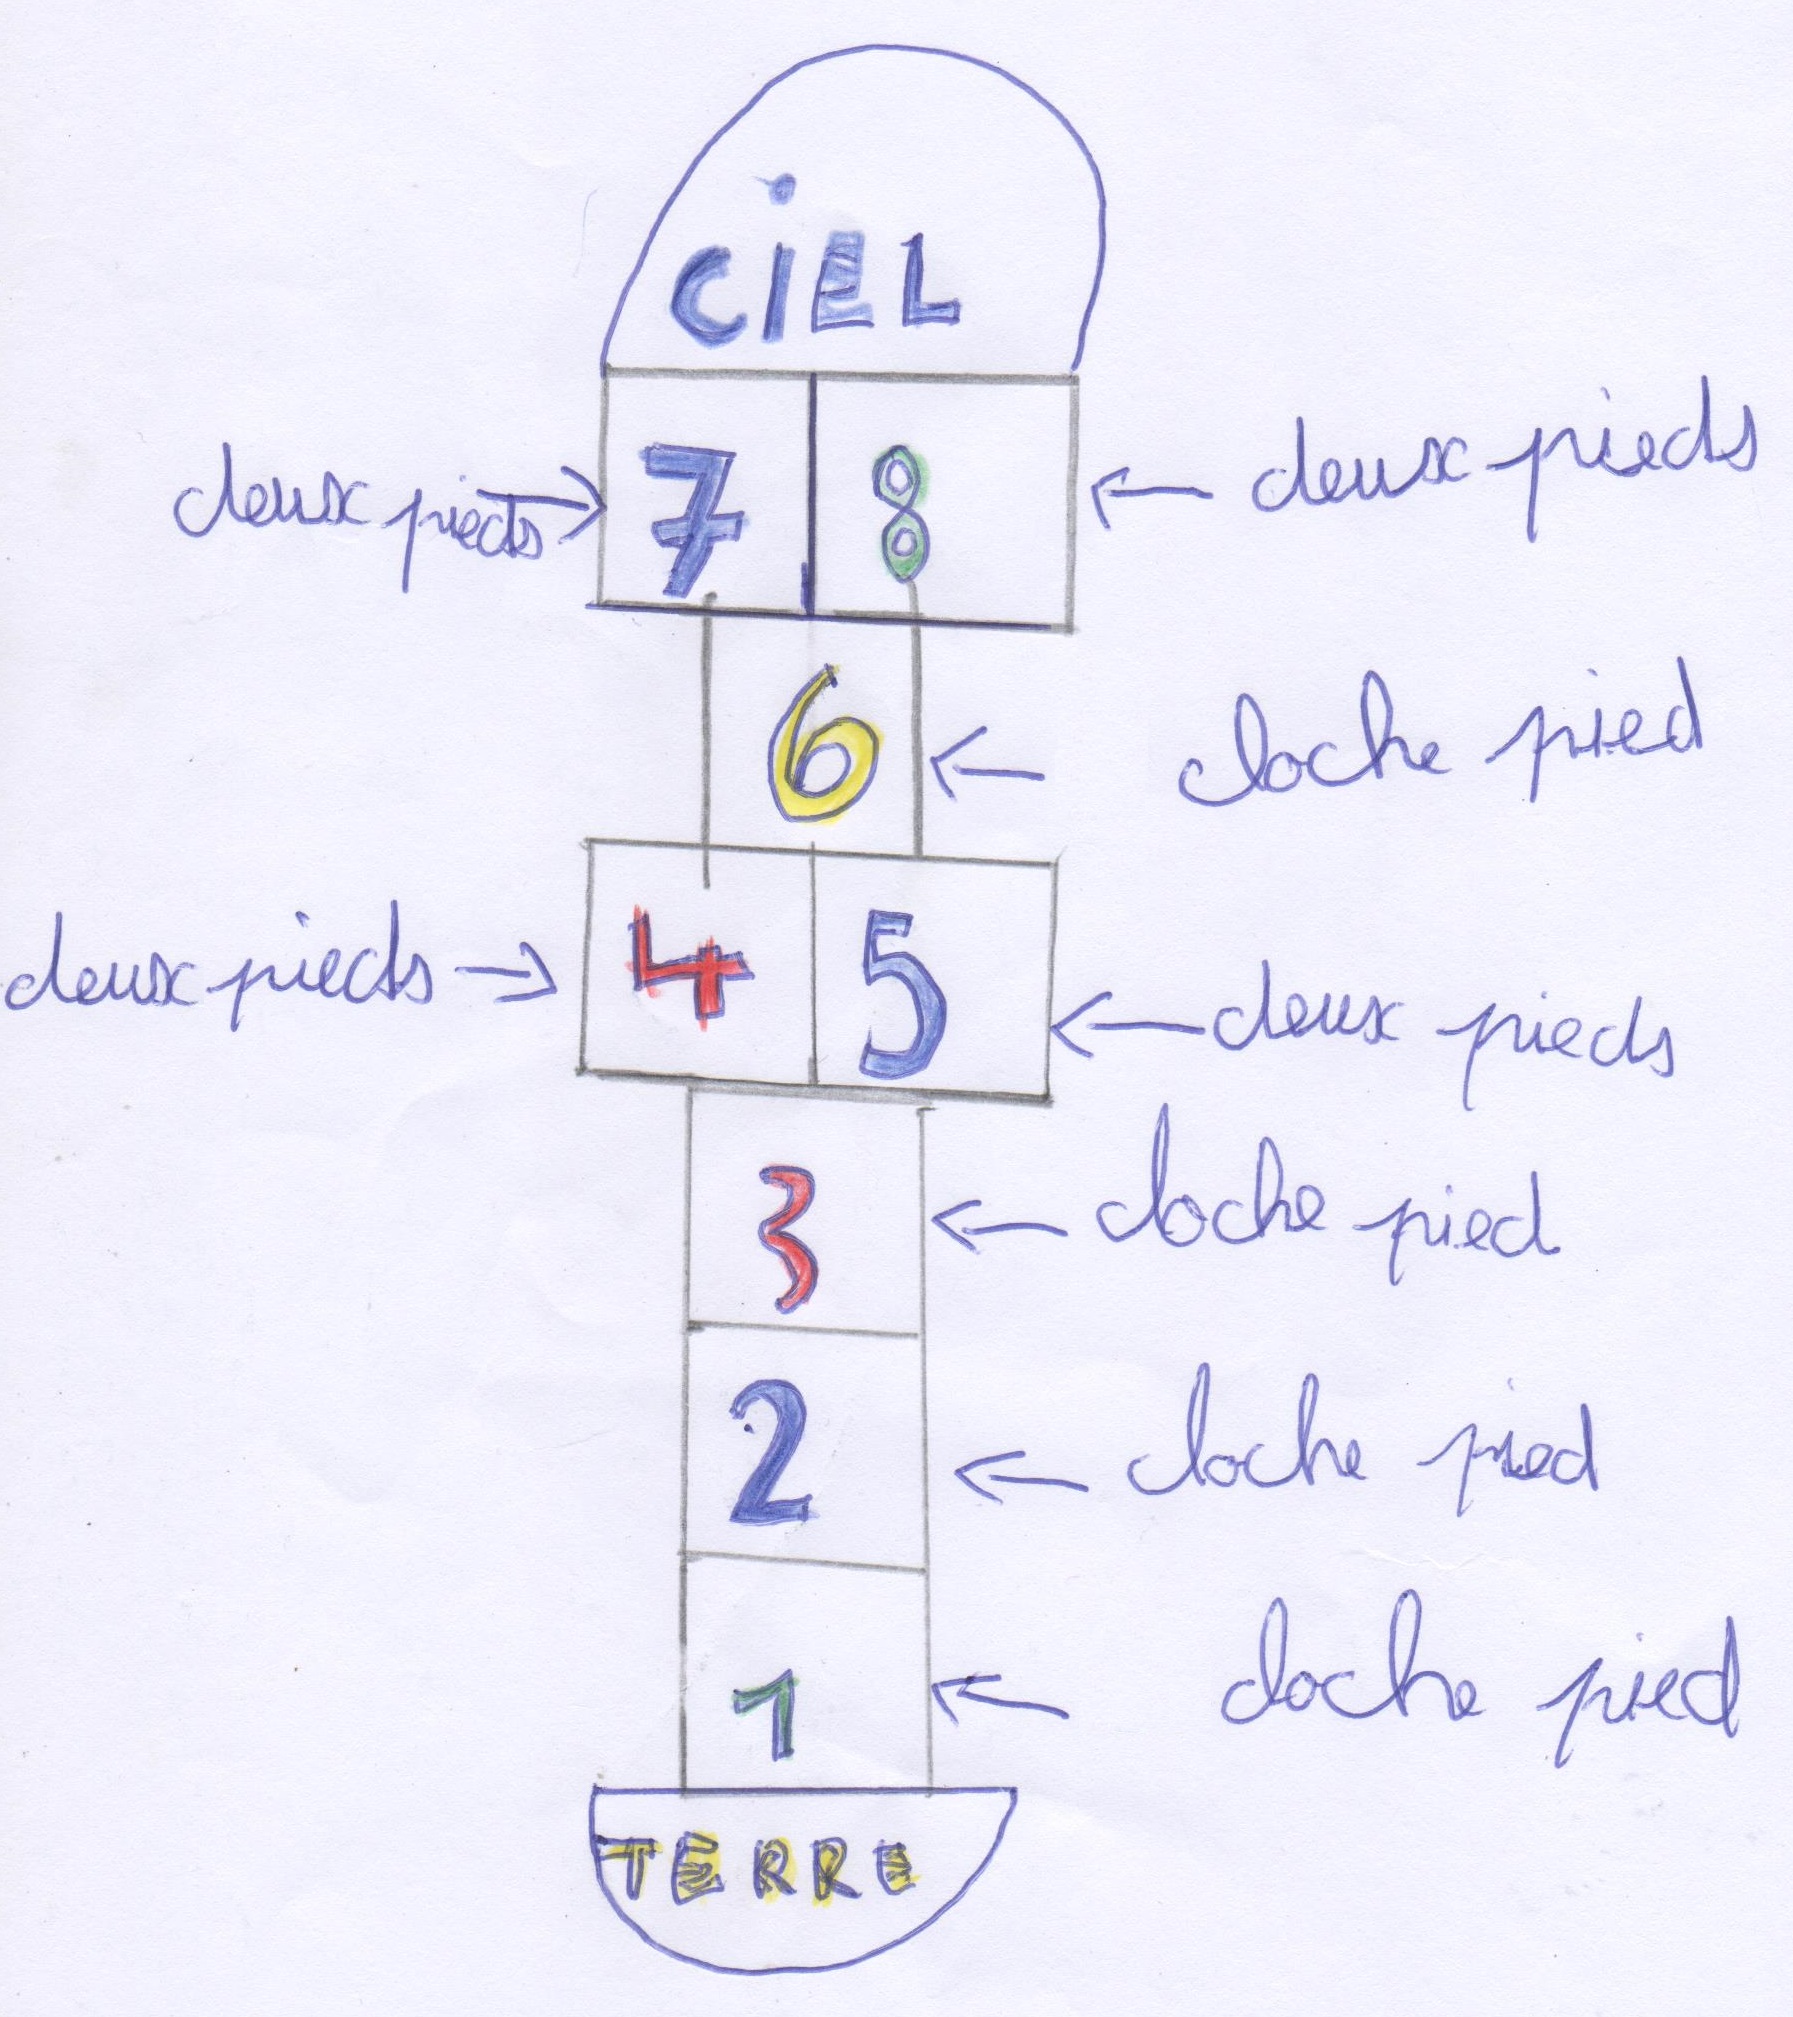 CiEL
deux pieds → 7 8 ← deux pieds
6 ← cloche pied
deux pieds → 4 5 ← deux pieds
3 ← cloche pied
2 ← cloche pied
1 ← cloche pied
TERRE